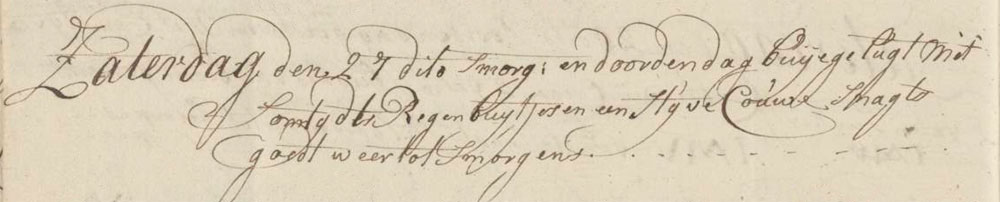 Zaterdag den 27 dito Smorg: en door den dag buijege lugt met
Somtyds Regenbuytjes en een Styve Couwe Snagts
goedt weer tot Smorgens